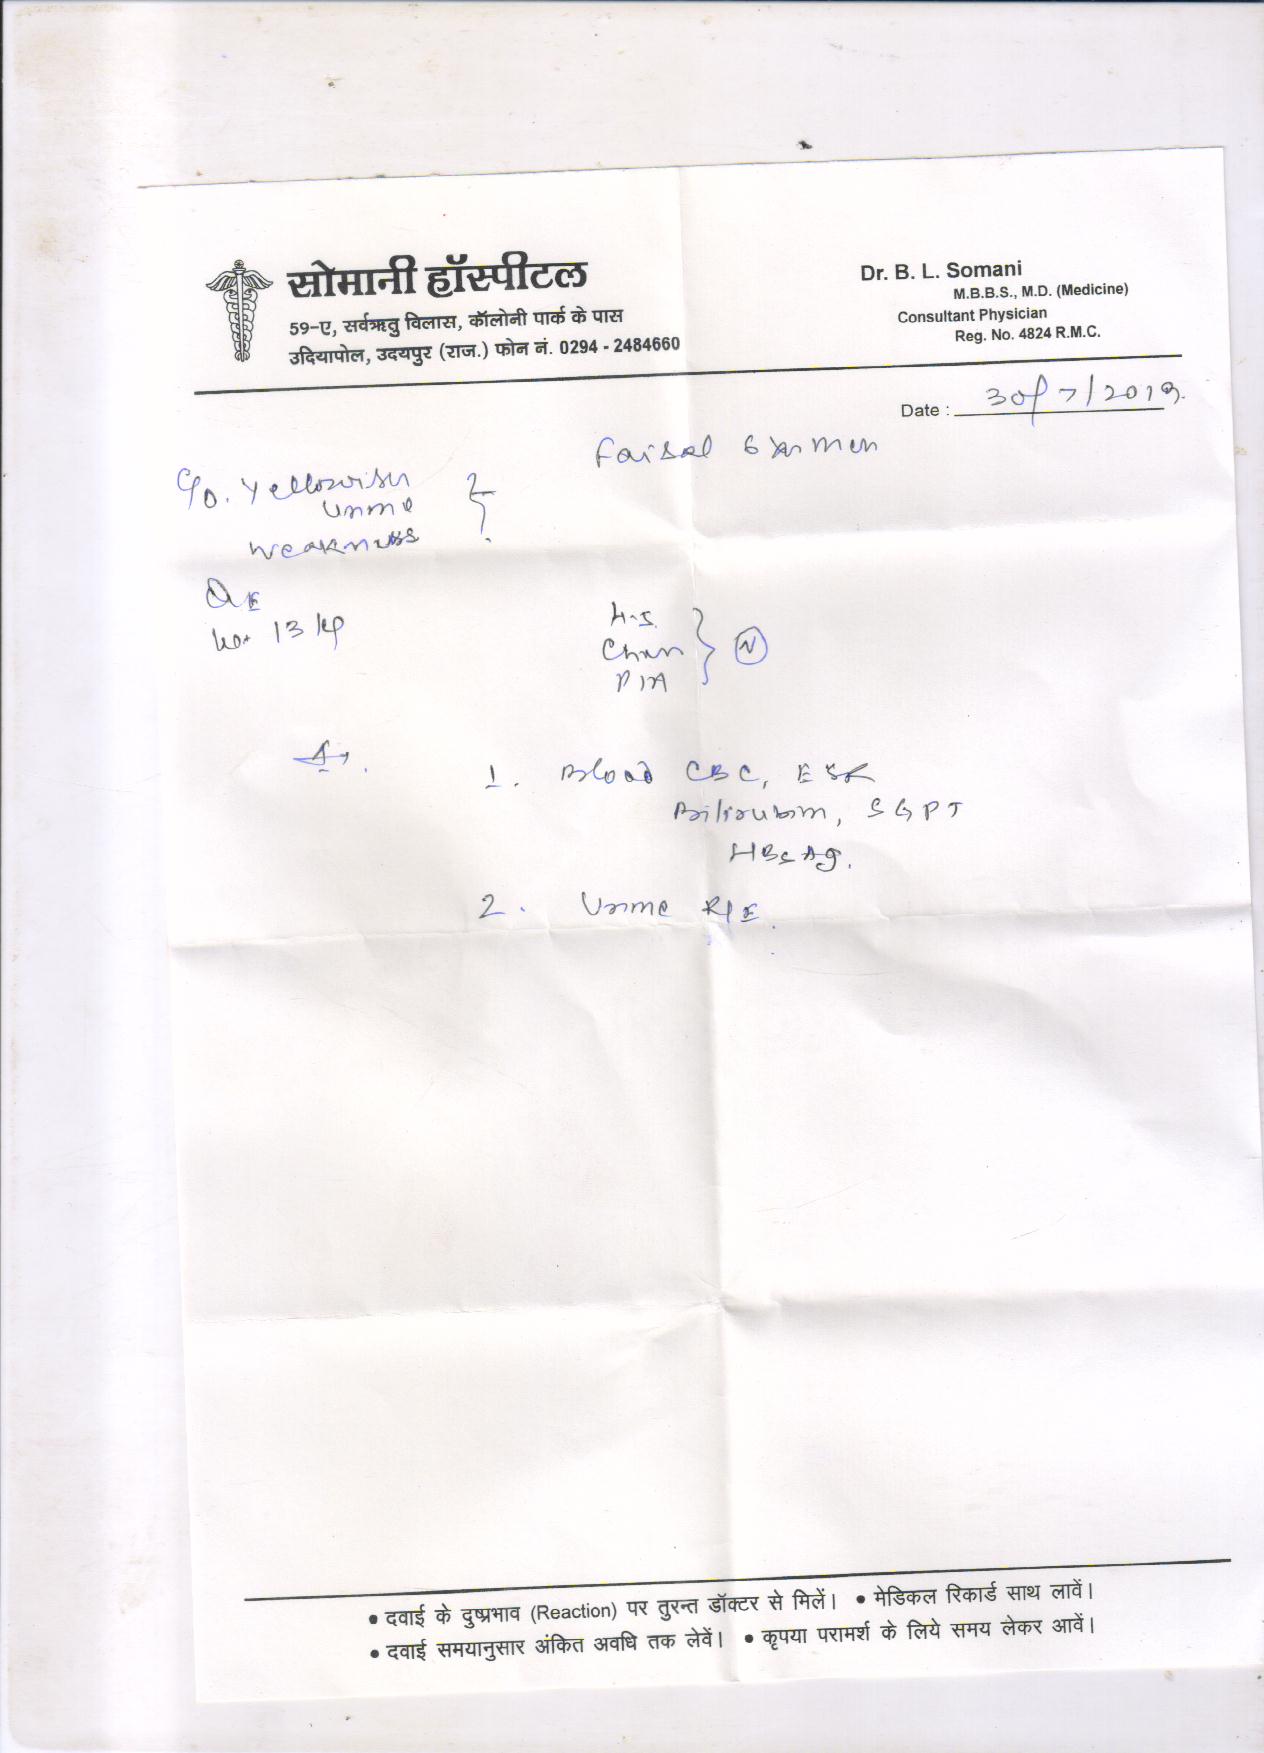 सोमानी हॉस्पीटल
59-ए, सर्वऋतु विलास, कॉलोनी पार्क के पास
उदियापोल, उदयपुर (राज.) फोन नं. 0294 - 2484660
Dr. B. L. Somani
M.B.B.S., M.D. (Medicine)
Consultant Physician
Reg. No. 4824 R.M.C.
Date : 30/7/2019
Faisal
C/o. Yellowish
Urine
Weakness
O/E
Wt 13 kg
H.S.
Chest
P/A
N
1. Blood CBC, ESR
Bilirubin, SGPT
HBsAg.
2. Urine R/E
• दवाई के दुष्प्रभाव (Reaction) पर तुरन्त डॉक्टर से मिलें। • मेडिकल रिकार्ड साथ लावें।
• दवाई समयानुसार अंकित अवधि तक लेवें। • कृपया परामर्श के लिये समय लेकर आवें।